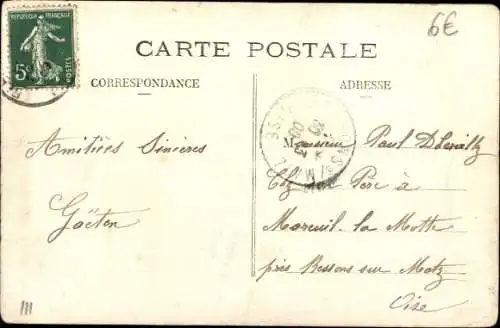 6€
REPUBLIQUE FRANÇAISE
5c
POSTES
CARTE POSTALE
CORRESPONDANCE
ADRESSE
Amitiées Sinières
Gäeten
Monsieur Paul
Chez Son Père à
Mareuil-la Motte
près Ressons sur Matz
Oise